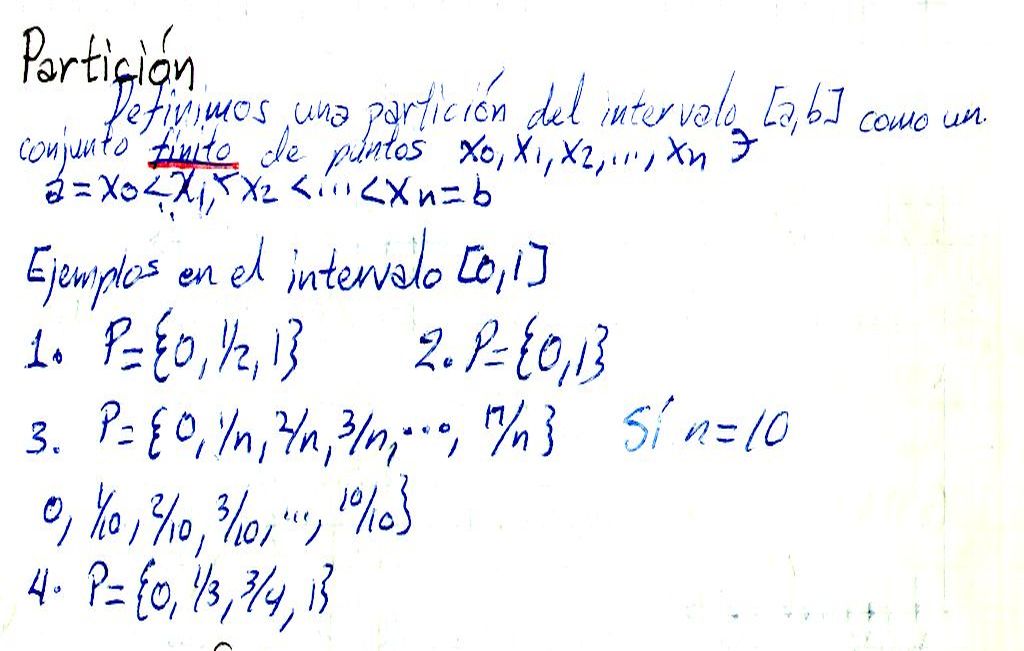 Partición
Definimos una partición del intervalo [a,b] como un
conjunto finito de puntos x₀, x₁, x₂, ..., xₙ ∋
a = x₀ < x₁, < x₂ < ... < xₙ = b
Ejemplos en el intervalo [0,1]
1. P={0, 1/2, 1} 2. P={0,1}
3. P={0, 1/n, 2/n, 3/n, ..., n/n} Sí n=10
0, 1/10, 2/10, 3/10, ..., 10/10}
4. P={0, 1/3, 3/4, 1}